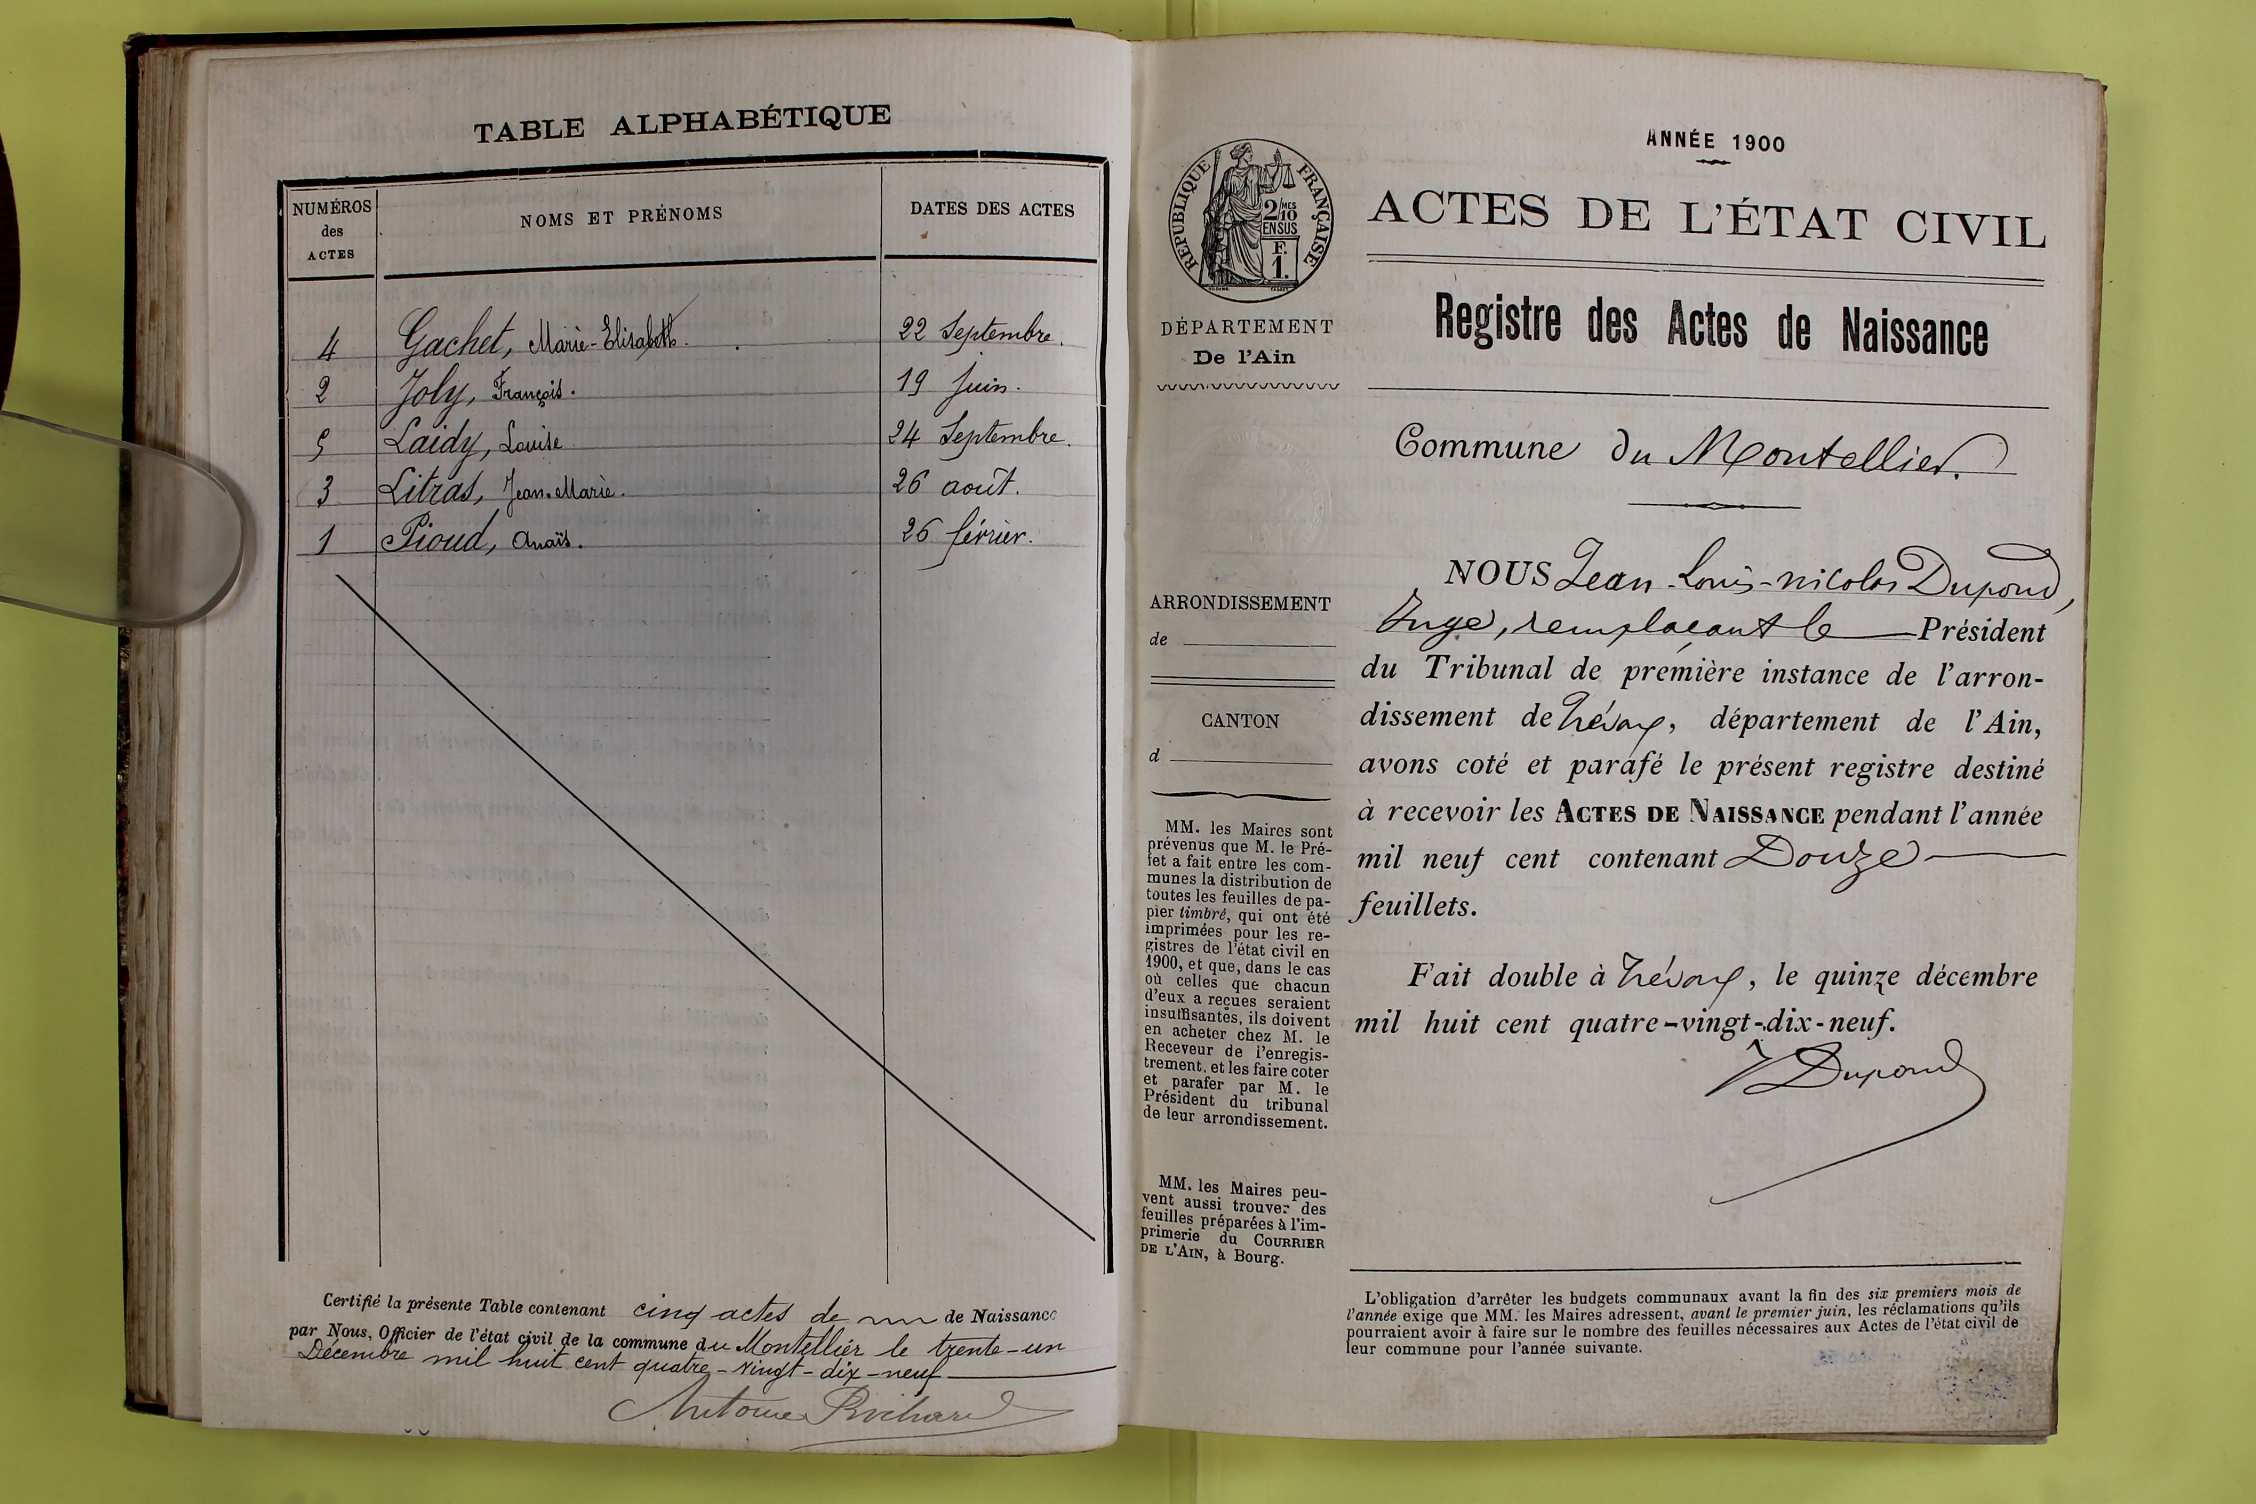 TABLE ALPHABÉTIQUE
NUMÉROS
des
ACTES
NOMS ET PRÉNOMS
DATES DES ACTES
4 Gachet, Marie-Elisabeth. 22 Septembre.
2 Joly, François. 19 Juin.
5 Laidy, Louise 24 Septembre.
3 Litras, Jean-Marie. 26 août.
1 Pioud, Anaïs. 26 février.
Certifié la présente Table contenant cinq actes de de Naissance
par Nous, Officier de l'état civil de la commune du Montellier le trente-un
Décembre mil huit cent quatre-vingt-dix-neuf
Antoine
RÉPUBLIQUE FRANÇAISE
2/10 MES
EN SUS
F.
1.
DÉPARTEMENT
De l'Ain
ARRONDISSEMENT
de
CANTON
d
MM. les Maires sont
prévenus que M. le Pré-
fet a fait entre les com-
munes la distribution de
toutes les feuilles de pa-
pier timbré, qui ont été
imprimées pour les re-
gistres de l'état civil en
1900, et que, dans le cas
où celles que chacun
d'eux a reçues seraient
insuffisantes, ils doivent
en acheter chez M. le
Receveur de l'enregis-
trement, et les faire coter
et parafer par M. le
Président du tribunal
de leur arrondissement.
MM. les Maires peu-
vent aussi trouver des
feuilles préparées à l'im-
primerie du COURRIER
DE L'AIN, à Bourg.
ANNÉE 1900
ACTES DE L'ÉTAT CIVIL
Registre des Actes de Naissance
Commune du Montellier.
NOUS Jean-Louis-nicolas Dupond,
Juge, remplaçant le Président
du Tribunal de première instance de l'arron-
dissement de Trévoux, département de l'Ain,
avons coté et parafé le présent registre destiné
à recevoir les ACTES DE NAISSANCE pendant l'année
mil neuf cent contenant Douze
feuillets.
Fait double à Trévoux, le quinze décembre
mil huit cent quatre-vingt-dix-neuf.
Dupond
L'obligation d'arrêter les budgets communaux avant la fin des six premiers mois de
l'année exige que MM. les Maires adressent, avant le premier juin, les réclamations qu'ils
pourraient avoir à faire sur le nombre des feuilles nécessaires aux Actes de l'état civil de
leur commune pour l'année suivante.